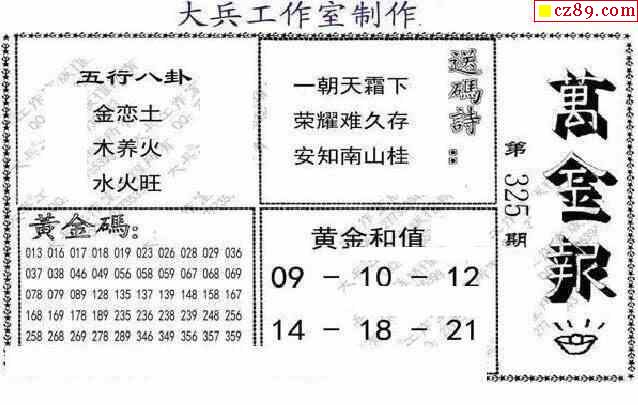 大兵工作室制作
cz89.com
五行八卦
金恋土
木养火
水火旺
送碼詩:
一朝天霜下
荣耀难久存
安知南山桂
萬金报
第325期
黃金碼:
013 016 017 018 019 023 026 028 029 036
037 038 046 049 056 058 059 067 068 069
078 079 089 128 135 137 139 148 158 167
168 169 178 189 235 236 238 239 248 256
258 268 269 278 289 346 349 356 357 359
黄金和值
09 - 10 - 12
14 - 18 - 21